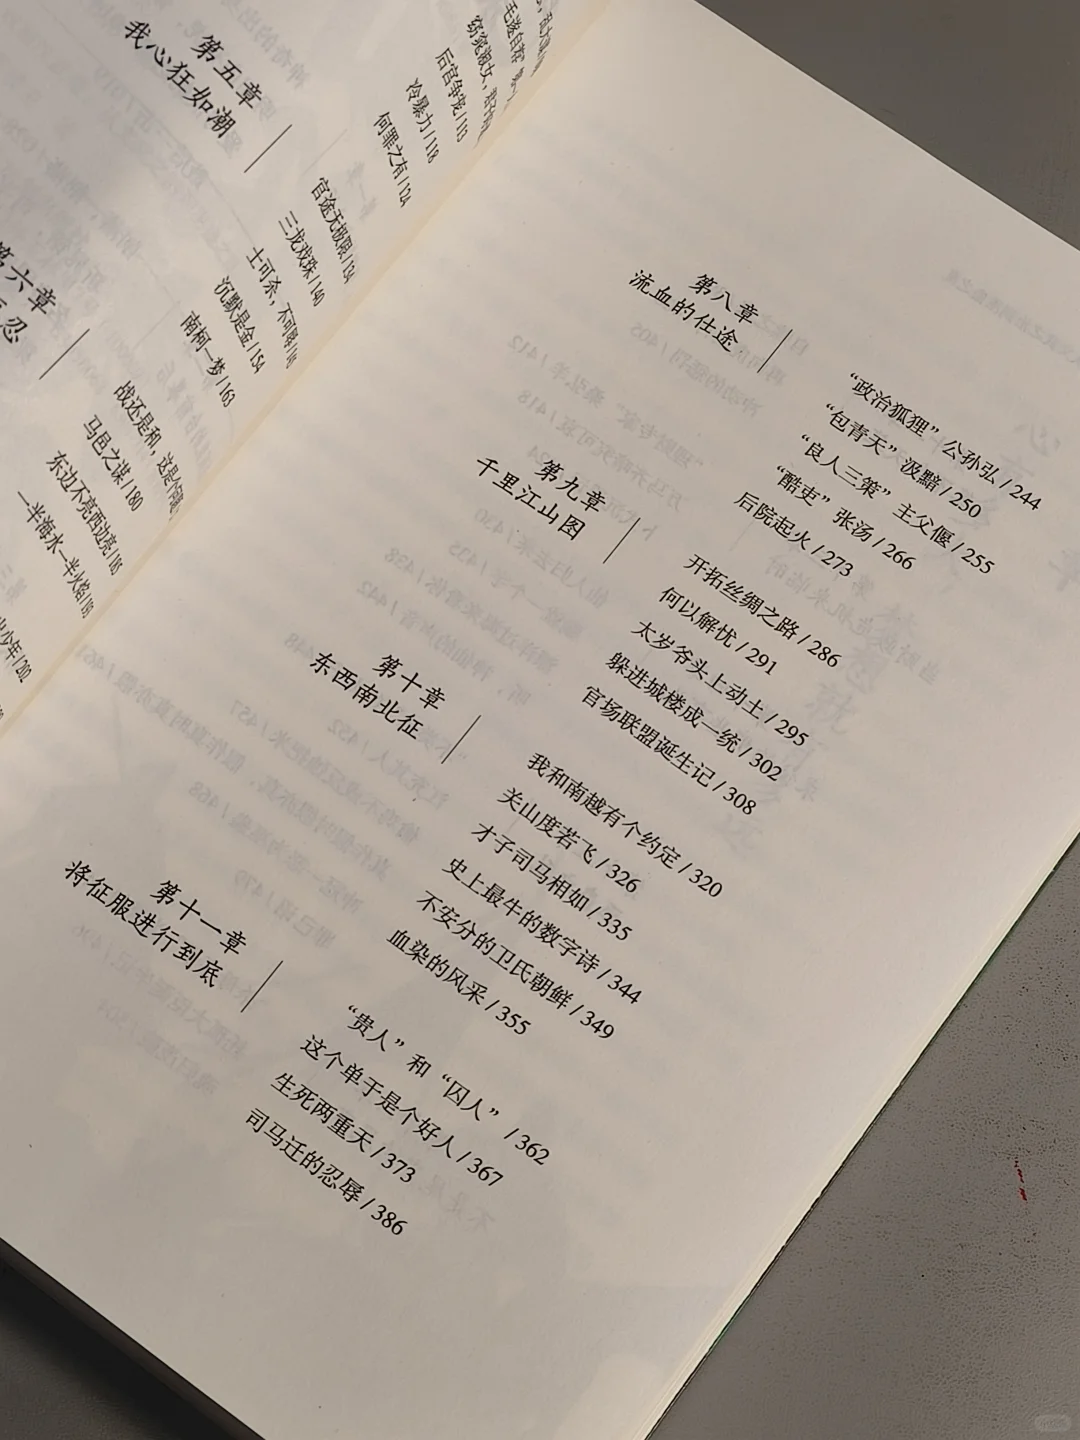 后宫争宠 / 113
冷暴力 / 118
何罪之有 / 124
第五章
我心狂如潮
官途无极限 / 134
三龙戏珠 / 140
士可杀，不可辱
沉默是金 / 154
南柯一梦 / 163
第六章
忍
战还是和，这是个问题
马邑之谋 / 180
东边不亮西边亮 / 185
一半海水一半火焰
少年 / 202
第八章
流血的仕途
“政治狐狸”公孙弘 / 244
“包青天”汲黯 / 250
“良人三策”主父偃 / 255
“酷吏”张汤 / 266
后院起火 / 273
第九章
千里江山图
开拓丝绸之路 / 286
何以解忧 / 291
太岁爷头上动土 / 295
躲进城楼成一统 / 302
官场联盟诞生记 / 308
第十章
东西南北征
我和南越有个约定 / 320
关山度若飞 / 326
才子司马相如 / 335
史上最牛的数字诗 / 344
不安分的卫氏朝鲜 / 349
血染的风采 / 355
第十一章
将征服进行到底
“贵人”和“囚人” / 362
这个单于是个好人 / 367
生死两重天 / 373
司马迁的忍辱 / 386